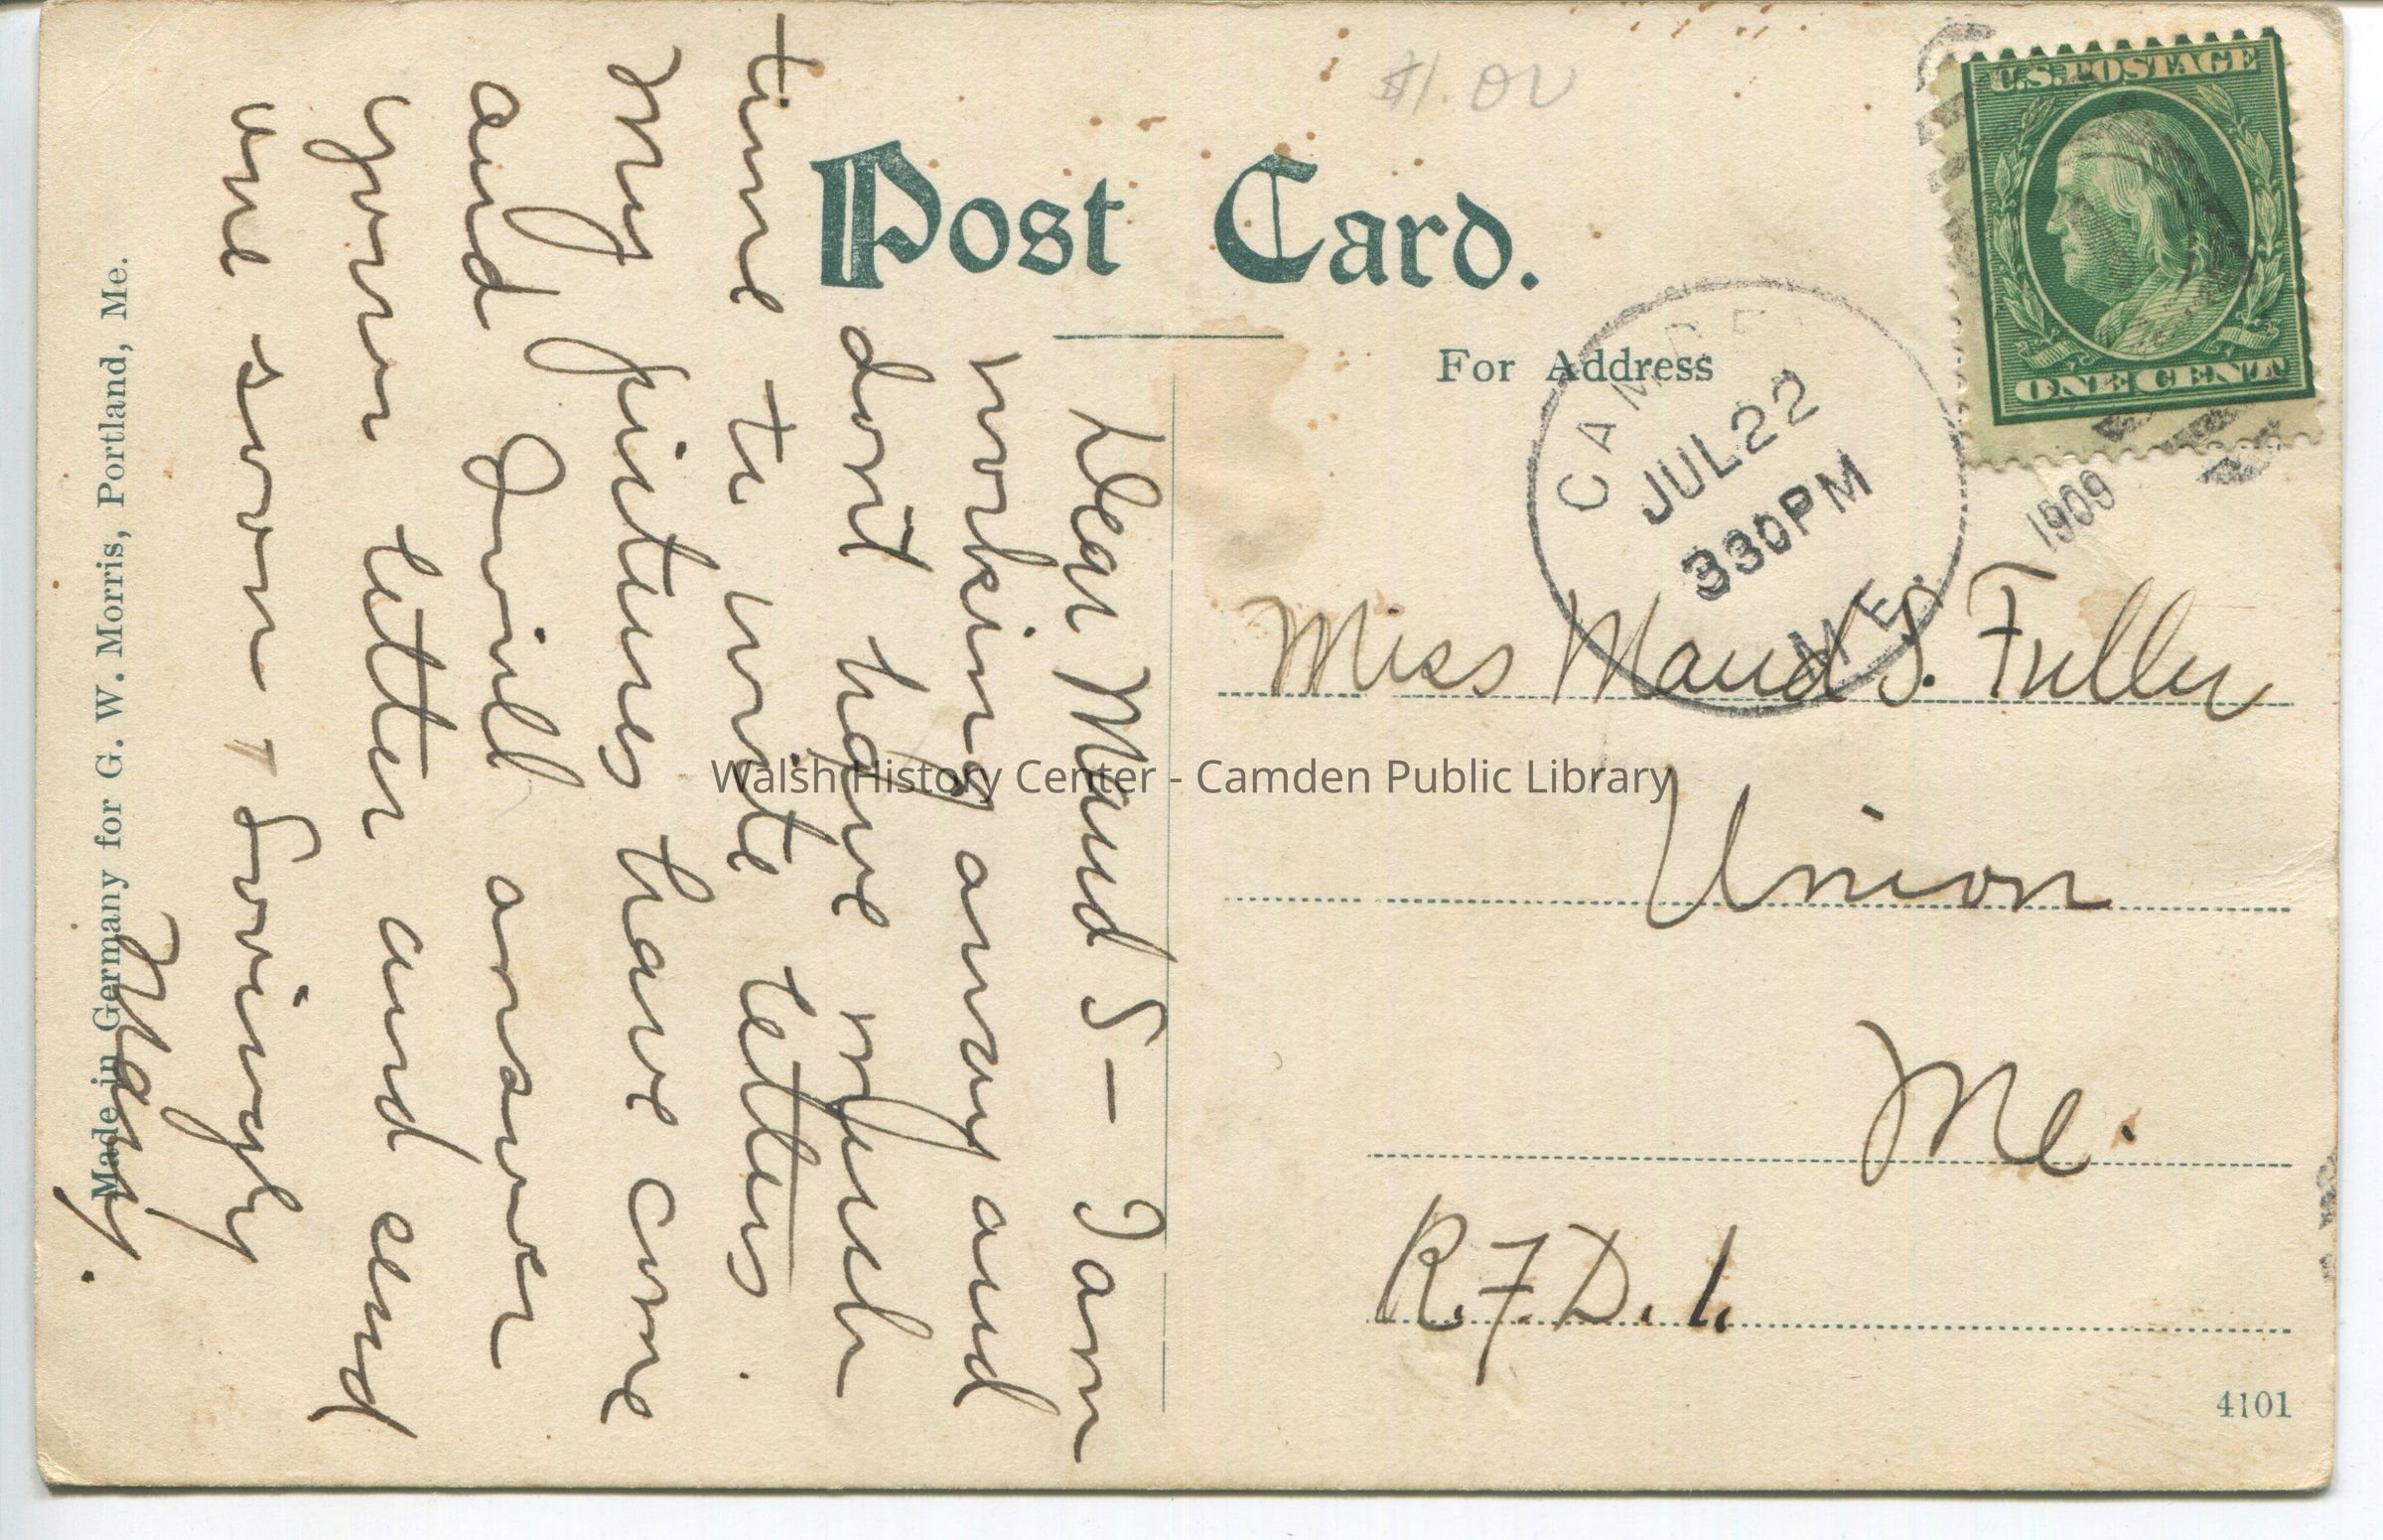 $1.00
U.S. POSTAGE
ONE CENT
Post Card.
For Address
CAMDEN
JUL 22
330PM
1909
ME.
Miss Maud S. Fuller
Union
Me.
R.F.D. 1.
4101
Dear Maud S— I am
working away and
dont have much
time to write letters.
My pictures have come
and I will answer
your letter and send
one soon, Lovingly
Mary.
Made in Germany for G. W. Morris, Portland, Me.
Walsh History Center - Camden Public Library